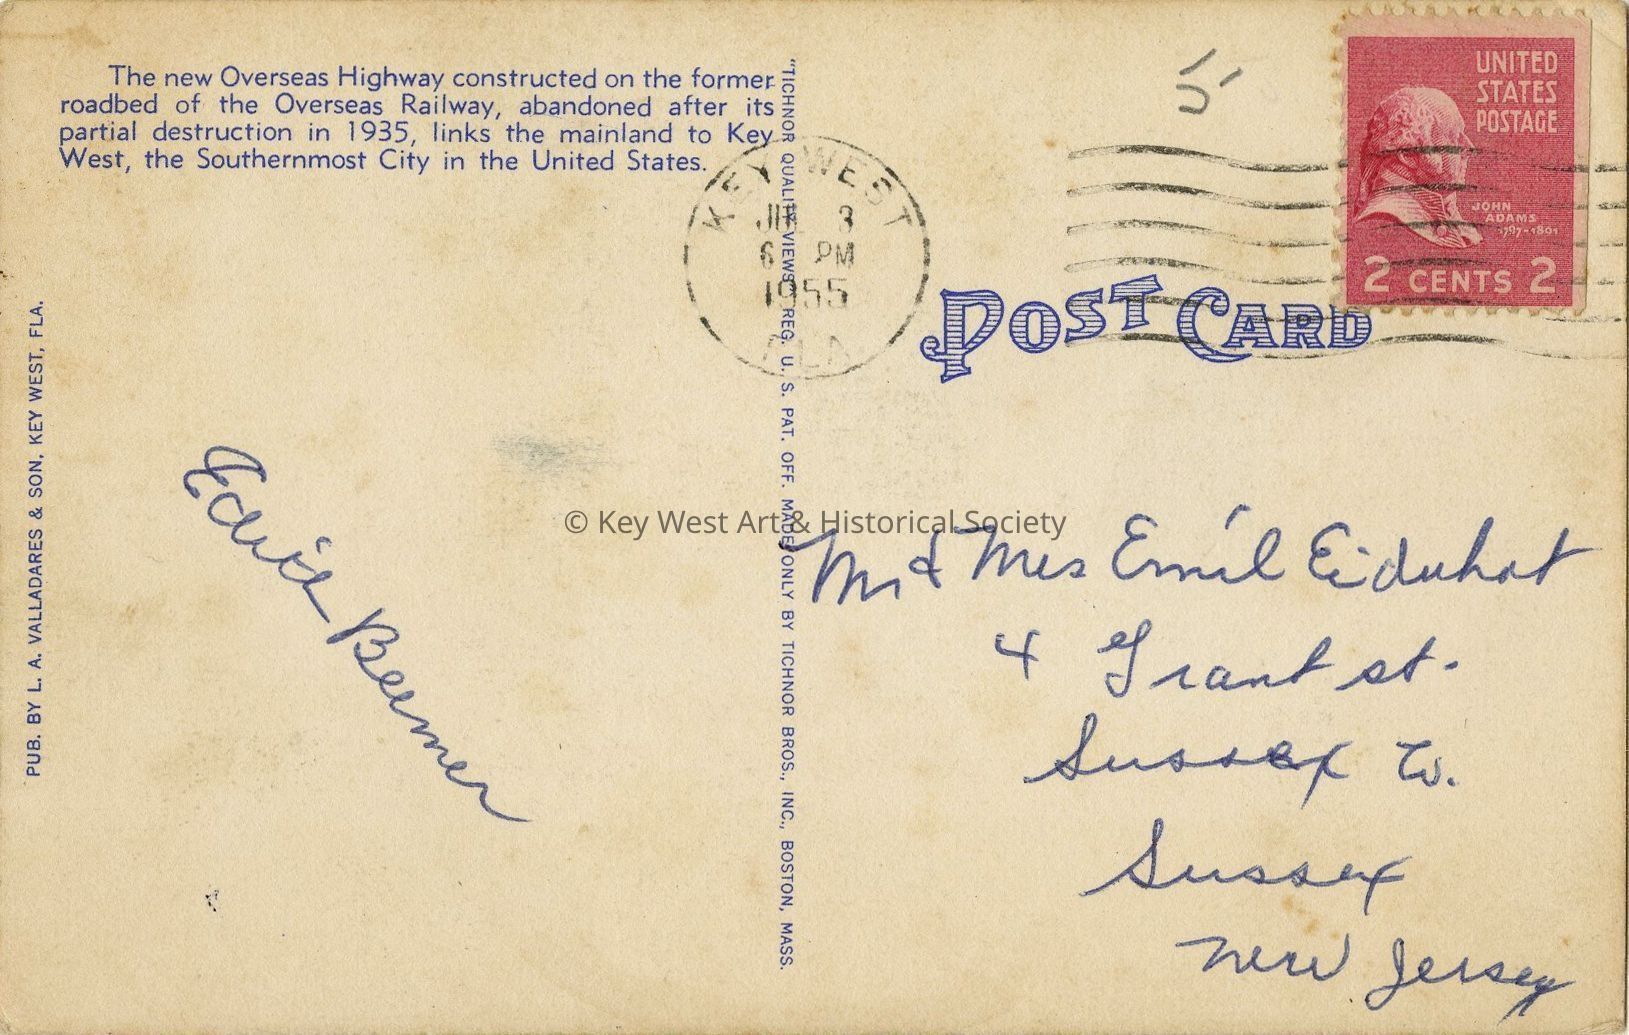 The new Overseas Highway constructed on the former
roadbed of the Overseas Railway, abandoned after its
partial destruction in 1935, links the mainland to Key
West, the Southernmost City in the United States.
PUB. BY L. A. VALLADARES & SON, KEY WEST, FLA.
"TICHNOR QUALITY VIEWS," REG. U. S. PAT. OFF. MADE ONLY BY TICHNOR BROS., INC., BOSTON, MASS.
KEY WEST
3
PM
1955
FLA
UNITED
STATES
POSTAGE
JOHN
ADAMS
1797-1801
2 CENTS 2
POST CARD
Beemer
© Key West Art & Historical Society
Mr & Mrs Emil
4 Grant st.
Sussex
Sussex
New Jersey